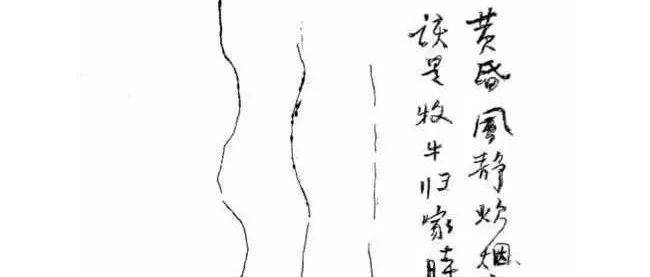 黄昏風静炊烟
该是牧牛归家時